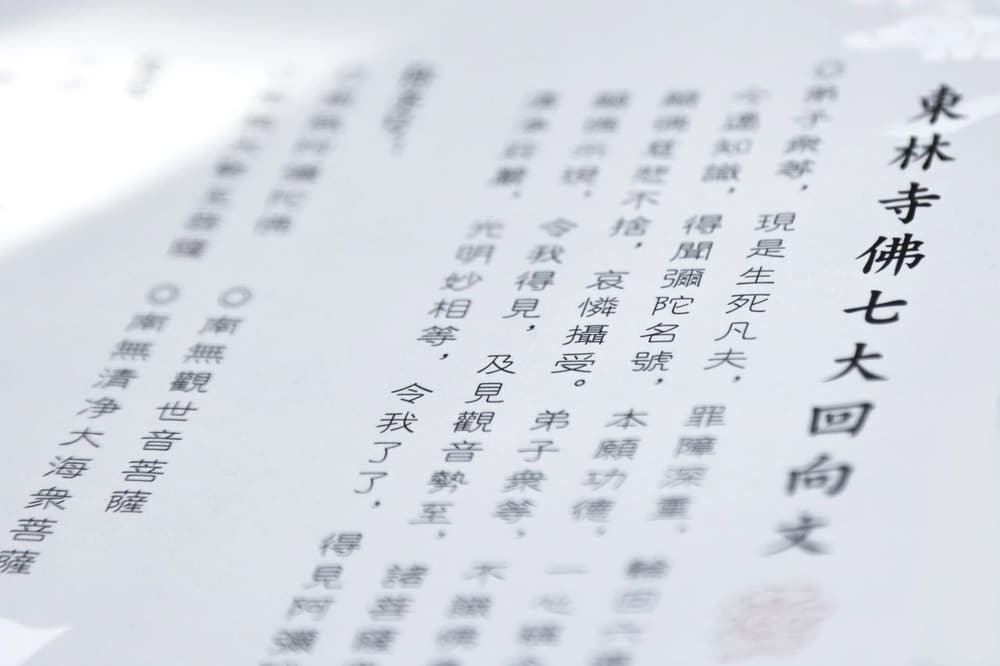 東林寺佛七大回向文
◎弟子衆等，現是生死凡夫，罪障深重，輪回六
今遇知識，得聞彌陀名號，本願功德，一心稱
願佛慈悲不捨，哀憐攝受。弟子衆等，不識佛
願佛示現，令我得見，及見觀音勢至，諸菩薩
光明妙相等，令我了了，得見阿彌
南無阿彌陀佛 ◎南無觀世音菩薩
大勢至菩薩 ◎南無清净大海衆菩薩